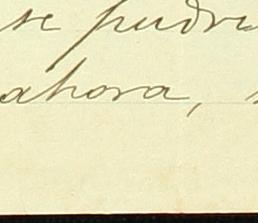 se pudri
ahora,